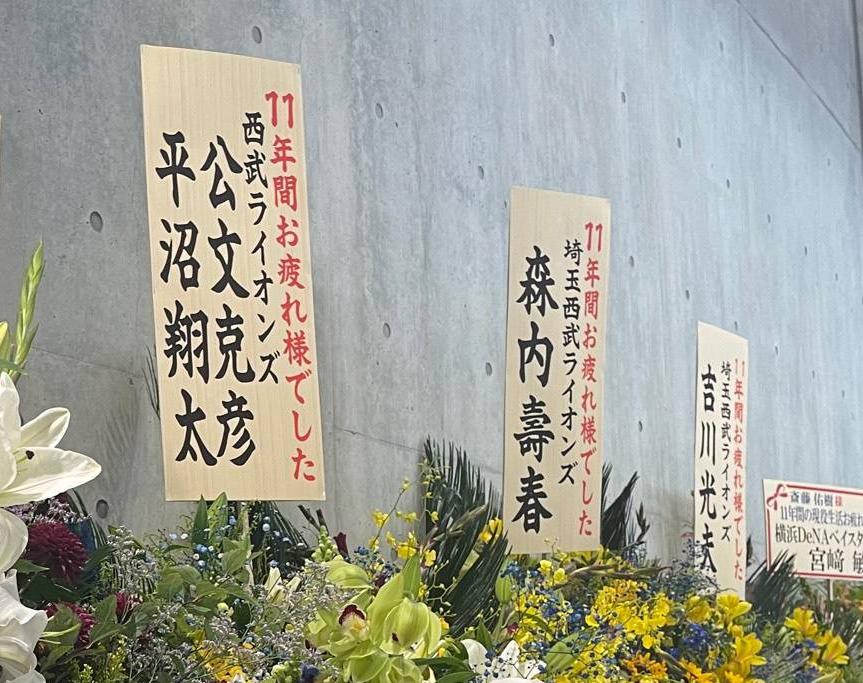 11年間お疲れ様でした
西武ライオンズ
公文克彦
平沼翔太
11年間お疲れ様でした
埼玉西武ライオンズ
森内壽春
11年間お疲れ様でした
埼玉西武ライオンズ
吉川光夫
斎藤佑樹様
11年間の現役生活お疲
横浜DeNAベイスタ
宮﨑 敏